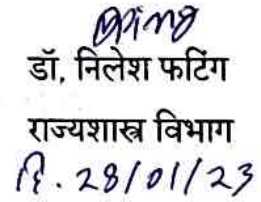 डॉ. निलेश फटिंग
राज्यशास्त्र विभाग
दि. 28/01/23